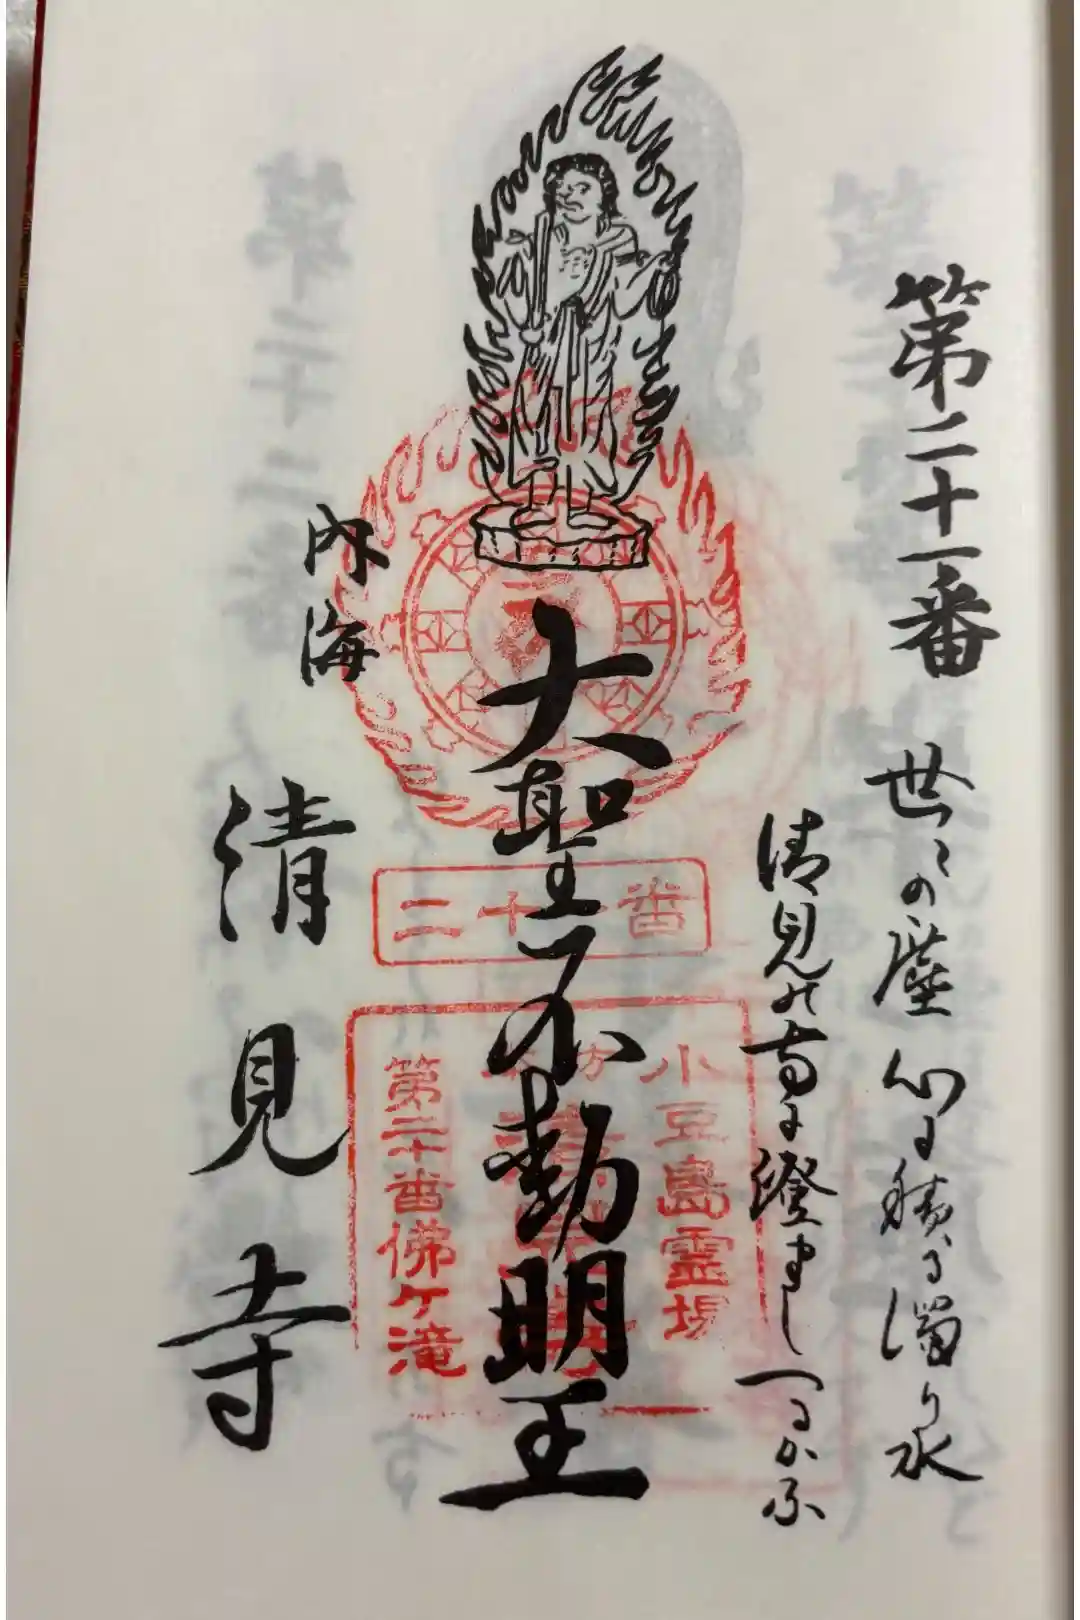 第二十一番
世ゝの塵心に積る濁り水
清見の寺に澄ましつるかな
大聖不動明王
内海
清見寺
二十一番
小豆島霊場
第二十番佛ヶ滝